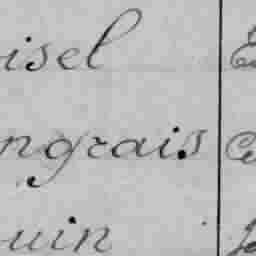 isel
ngrais
uin